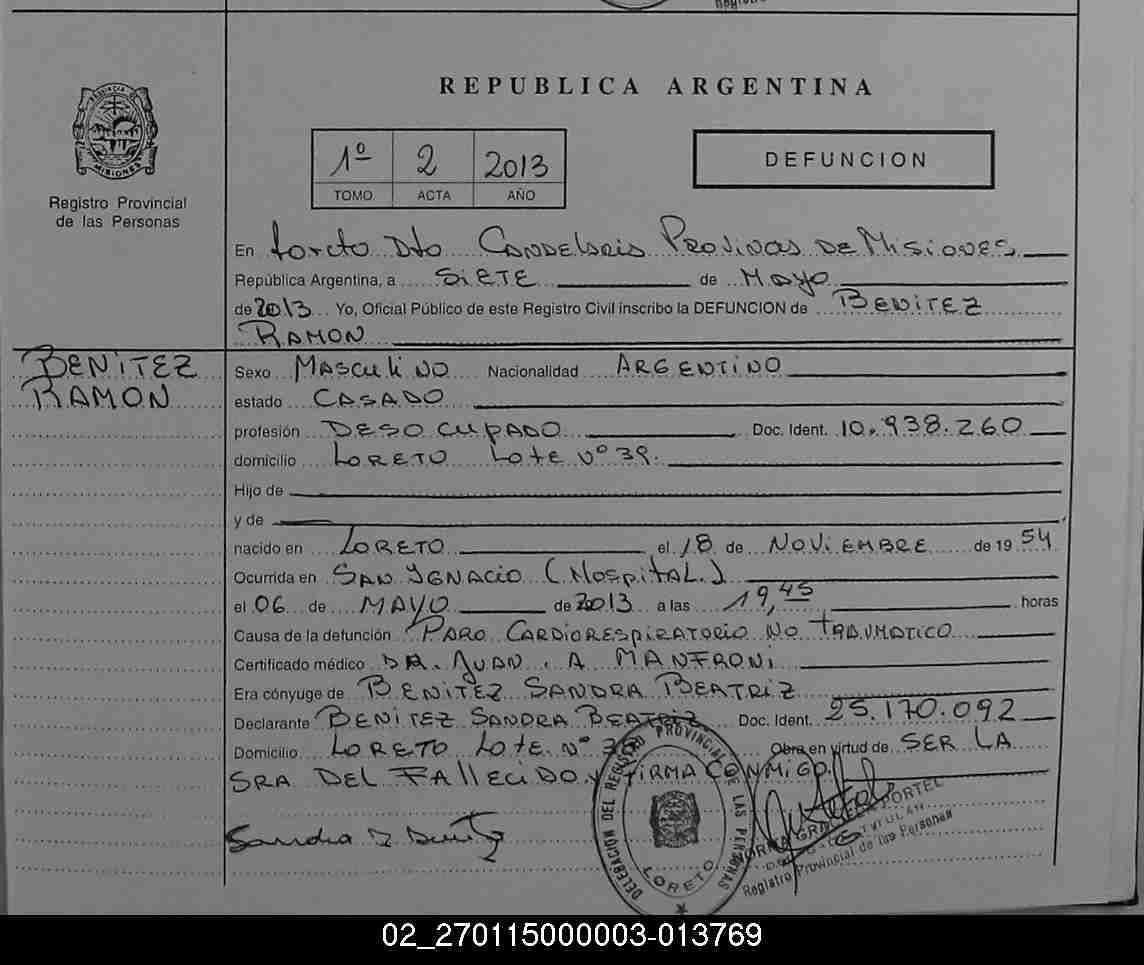 REPUBLICA ARGENTINA
PROVINCIA DE
MISIONES
Registro Provincial
de las Personas
1º 2 2013
TOMO ACTA AÑO
DEFUNCION
En Loreto Dto Candelaria Provincia de Misiones
República Argentina, a SiETE de Mayo
de 2013 Yo, Oficial Público de este Registro Civil inscribo la DEFUNCION de BENITEZ
RAMON
BENITEZ
RAMON
Sexo MASCULINO Nacionalidad ARGENTINO
estado CASADO
profesión DESOCUPADO Doc. Ident. 10.938.260
domicilio LORETO Lote Nº 39.
Hijo de
y de
nacido en LORETO el 18 de NOVIEMBRE de 1954
Ocurrida en SAN IGNACIO (HospitaL.)
el 06 de MAYO de 2013 a las 19,45 horas
Causa de la defunción PARO CARDIORESPIRATORIO NO TRAUMATICO
Certificado médico DR. JUAN. A MANFRONI
Era cónyuge de BENITEZ SANDRA BEATRIZ
Declarante BENITEZ SANDRA BEATRIZ Doc. Ident. 25.170.092
Domicilio LORETO Lote Nº Obra en virtud de SER LA
SRA DEL FALLECIDO y FIRMA CONMIGO.
DELEGACION DEL REGISTRO PROVINCIAL DE LAS PERSONAS
LORETO
PORTEL
Registro Provincial de las Personas
02_270115000003-013769